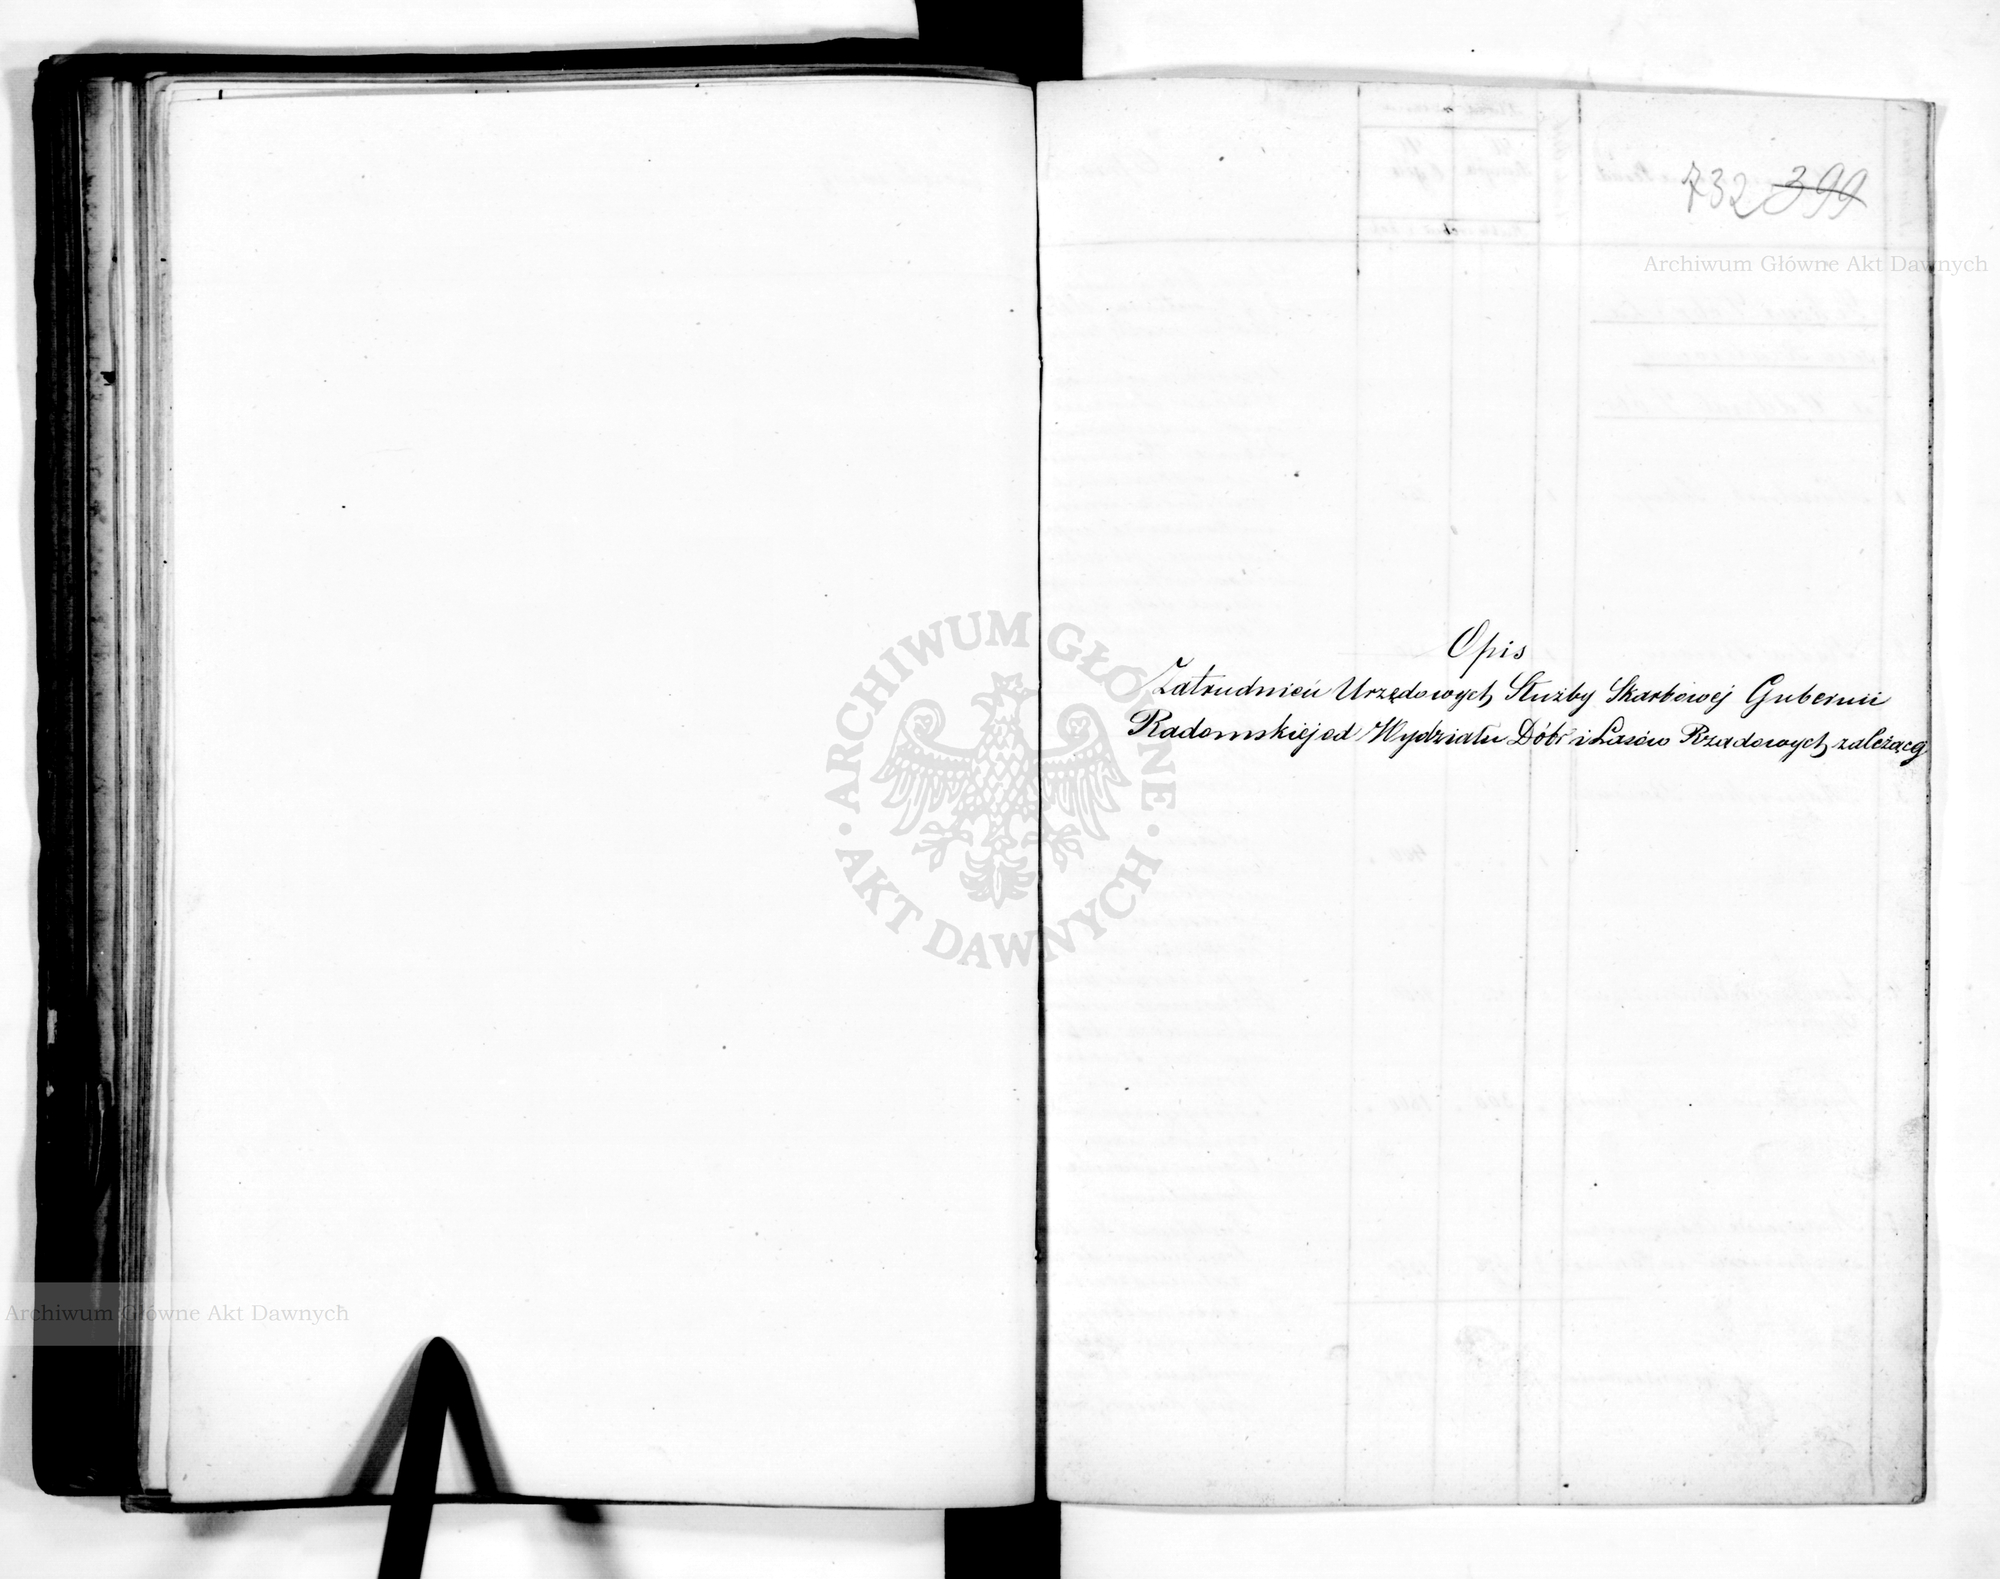 732 399
Archiwum Główne Akt Dawnych
Opis
Zatrudnień Urzędowych Służby Skarbowej Gubernii
Radomskiej od Wydziału Dóbr i Lasów Rządowych zależącej
ARCHIWUM GŁÓWNE
AKT DAWNYCH
Archiwum Główne Akt Dawnych